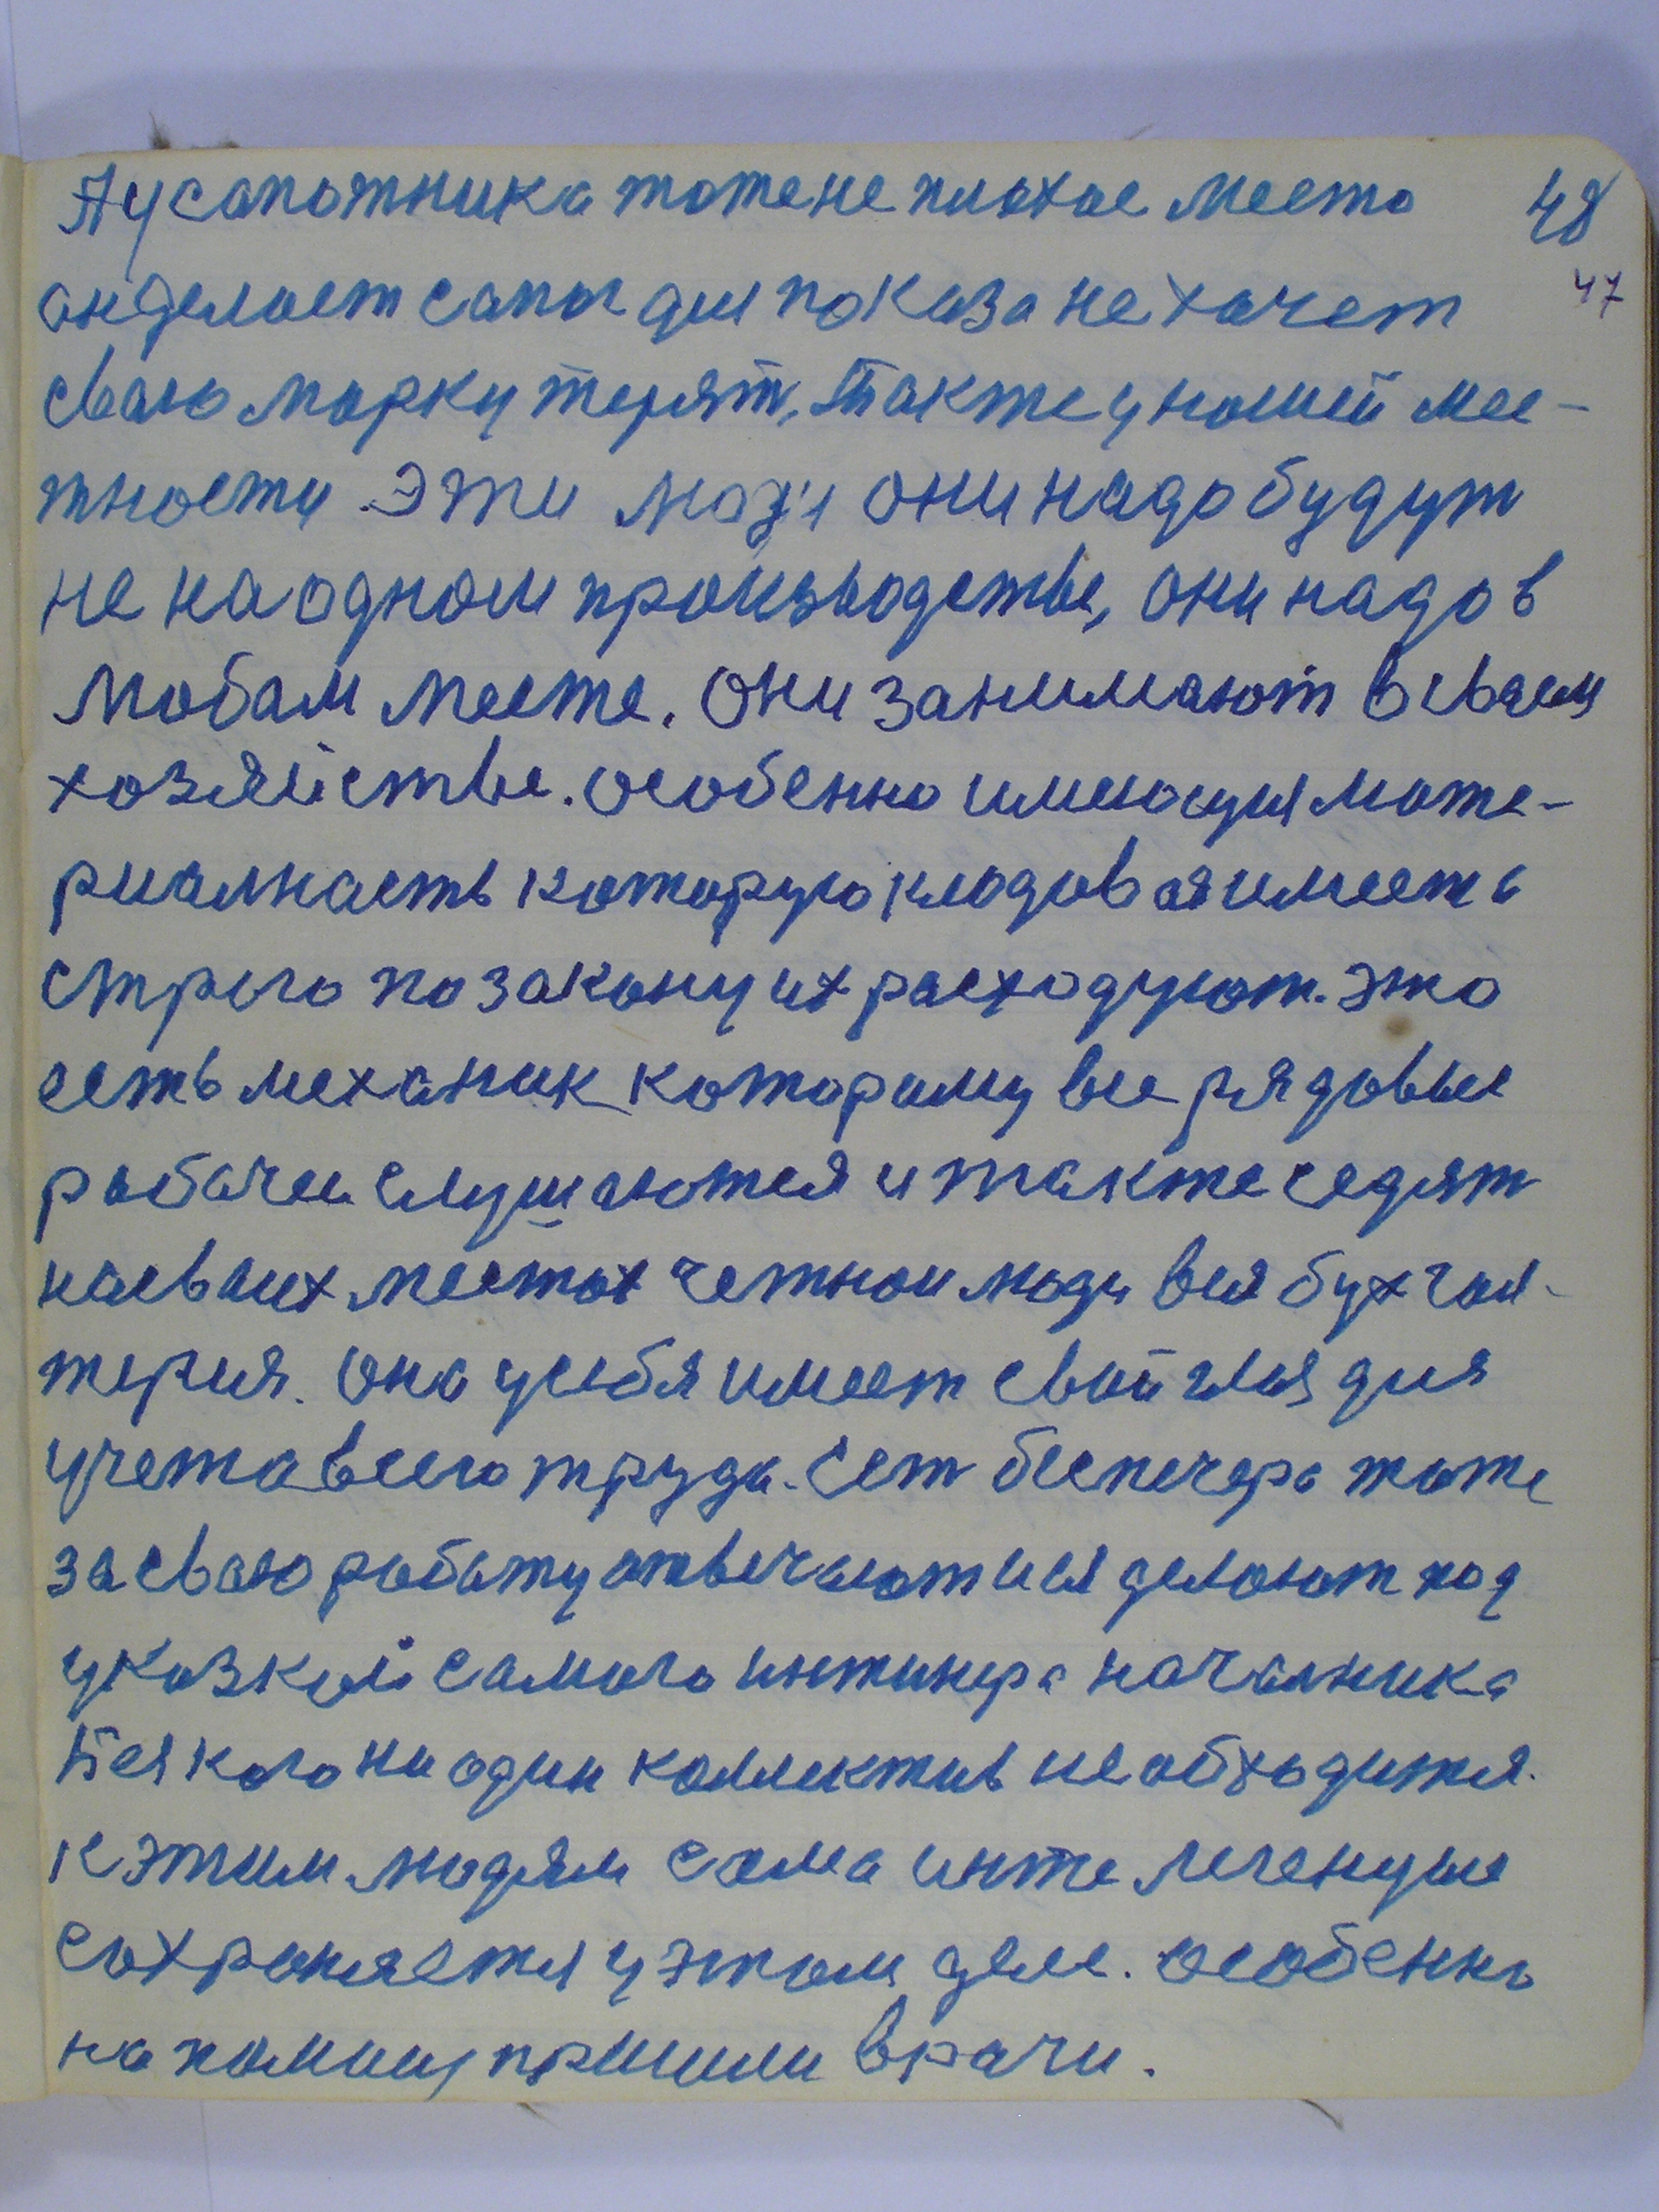 А у сапожника тоже не плохае место 48
он делает сапог для показа не хочет 47
сваю марку терят, также у нашей мес-
тности. Эти люди они надо будут
не на одном производстве, они надо в
любам месте. Они занимают в сваем
хозяйстве. особенно имеющия мате-
риалнасть каторую кладовая имеета
строго по закону их расходуют. Это
есть механик каторому все рядовые
рабочее слушаются и также седят
на своих местах четнои люди вся бухгал-
терия. Она у себя имеет свой глаз для
учета всего труда. Сет беспечера тоже
за сваю работу отвечают и ея делают под
указкой самого инжинера началника
Без кого ни один коллектив не обходится.
К этим людям сама интелегенцые
сохраняется у этом деле. особенно
на помищ пришли врачи.